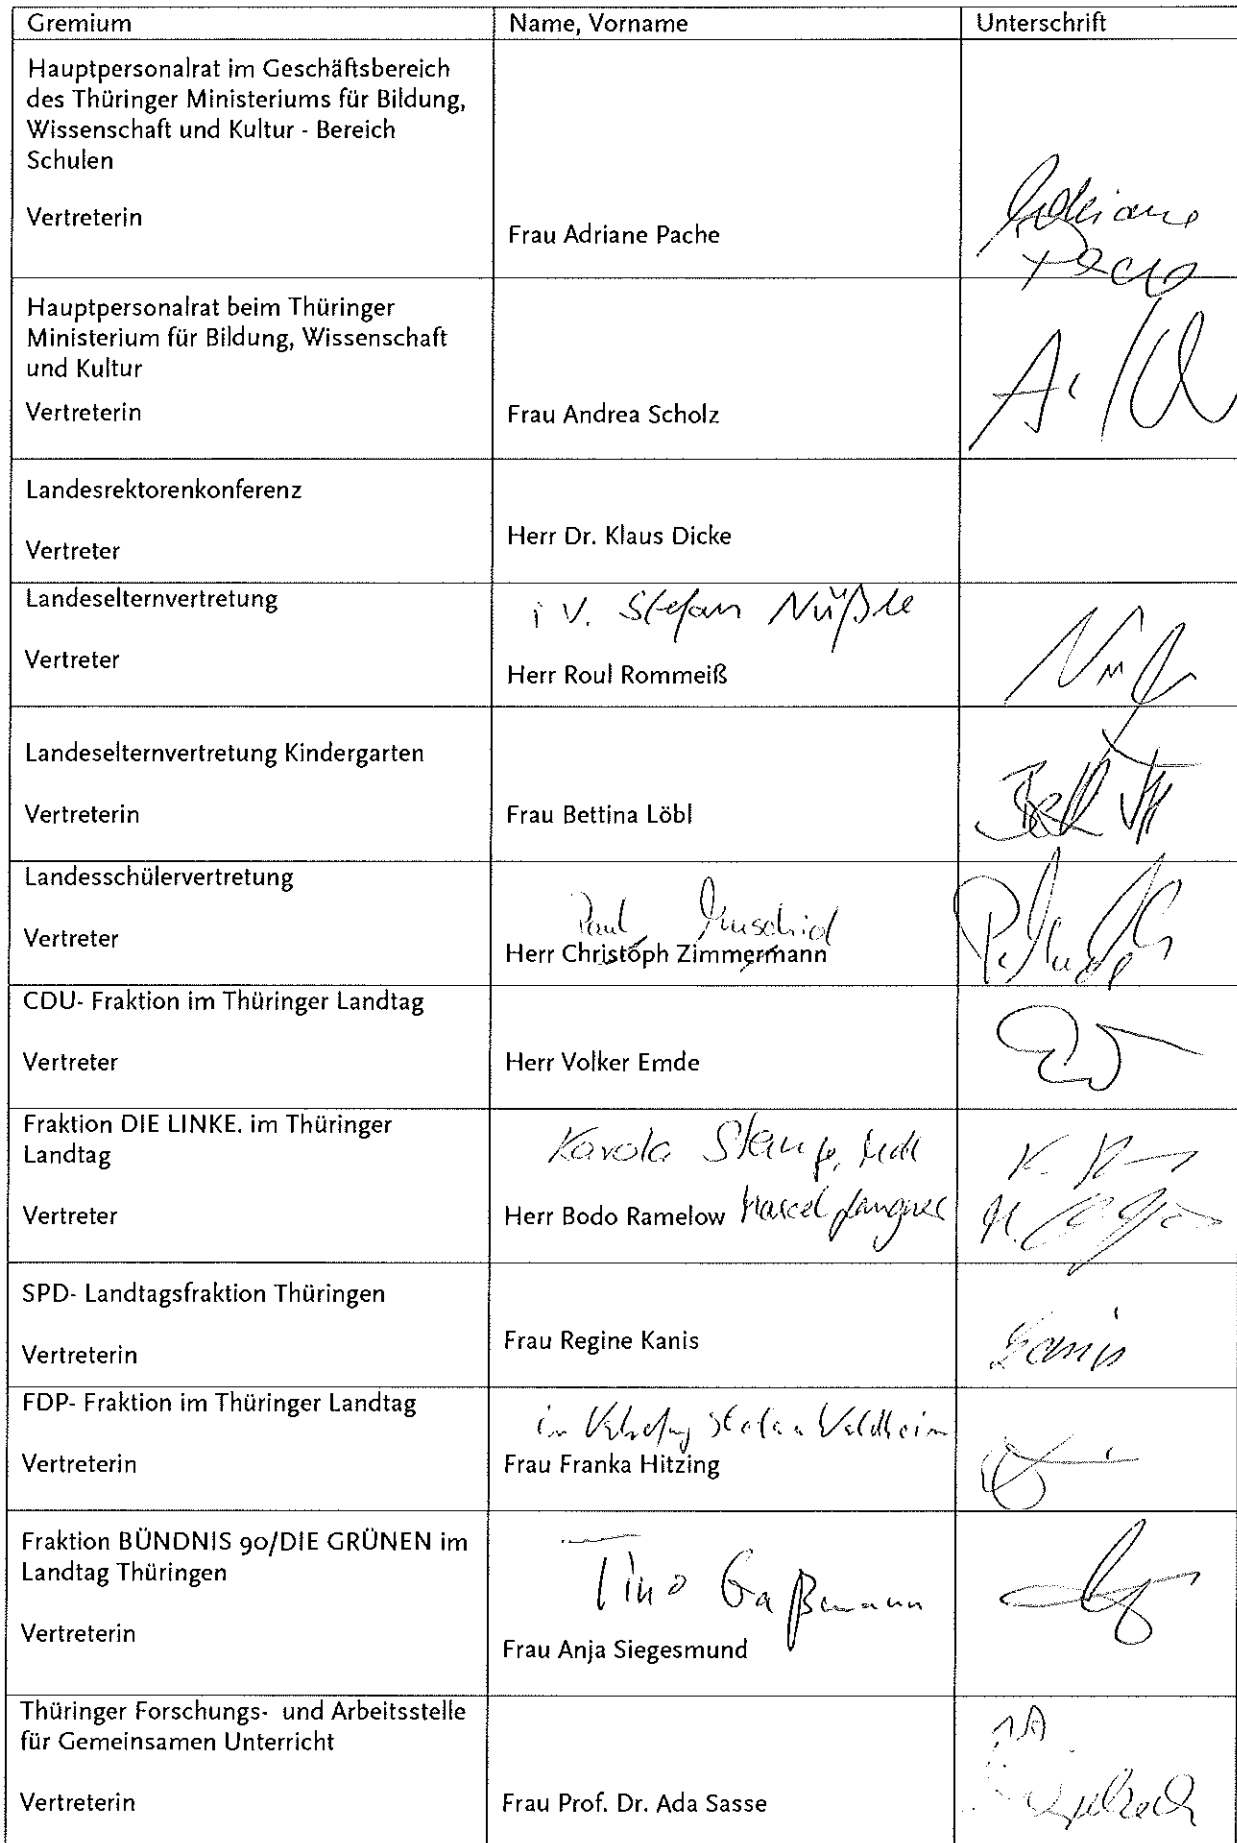 Gremium Name, Vorname Unterschrift
Hauptpersonalrat im Geschäftsbereich
des Thüringer Ministeriums für Bildung,
Wissenschaft und Kultur - Bereich
Schulen
Vertreterin
Frau Adriane Pache
Adriane
Pache
Hauptpersonalrat beim Thüringer
Ministerium für Bildung, Wissenschaft
und Kultur
Vertreterin Frau Andrea Scholz
Landesrektorenkonferenz
Vertreter
Herr Dr. Klaus Dicke
Landeselternvertretung
i V. Stefan Nüßle
Vertreter
Herr Roul Rommeiß
Landeselternvertretung Kindergarten
Vertreterin Frau Bettina Löbl
Landesschülervertretung
Paul
Vertreter
Herr Christoph Zimmermann
CDU- Fraktion im Thüringer Landtag
Vertreter Herr Volker Emde
Fraktion DIE LINKE. im Thüringer
Landtag
Karola Stange, MdL
Vertreter Herr Bodo Ramelow Marcel
SPD- Landtagsfraktion Thüringen
Vertreterin
Frau Regine Kanis
Kanis
FDP- Fraktion im Thüringer Landtag
in Vertretung
Vertreterin Frau Franka Hitzing
Fraktion BÜNDNIS 90/DIE GRÜNEN im
Landtag Thüringen
Tino Gaßmann
Vertreterin
Frau Anja Siegesmund
Thüringer Forschungs- und Arbeitsstelle
für Gemeinsamen Unterricht
Vertreterin Frau Prof. Dr. Ada Sasse